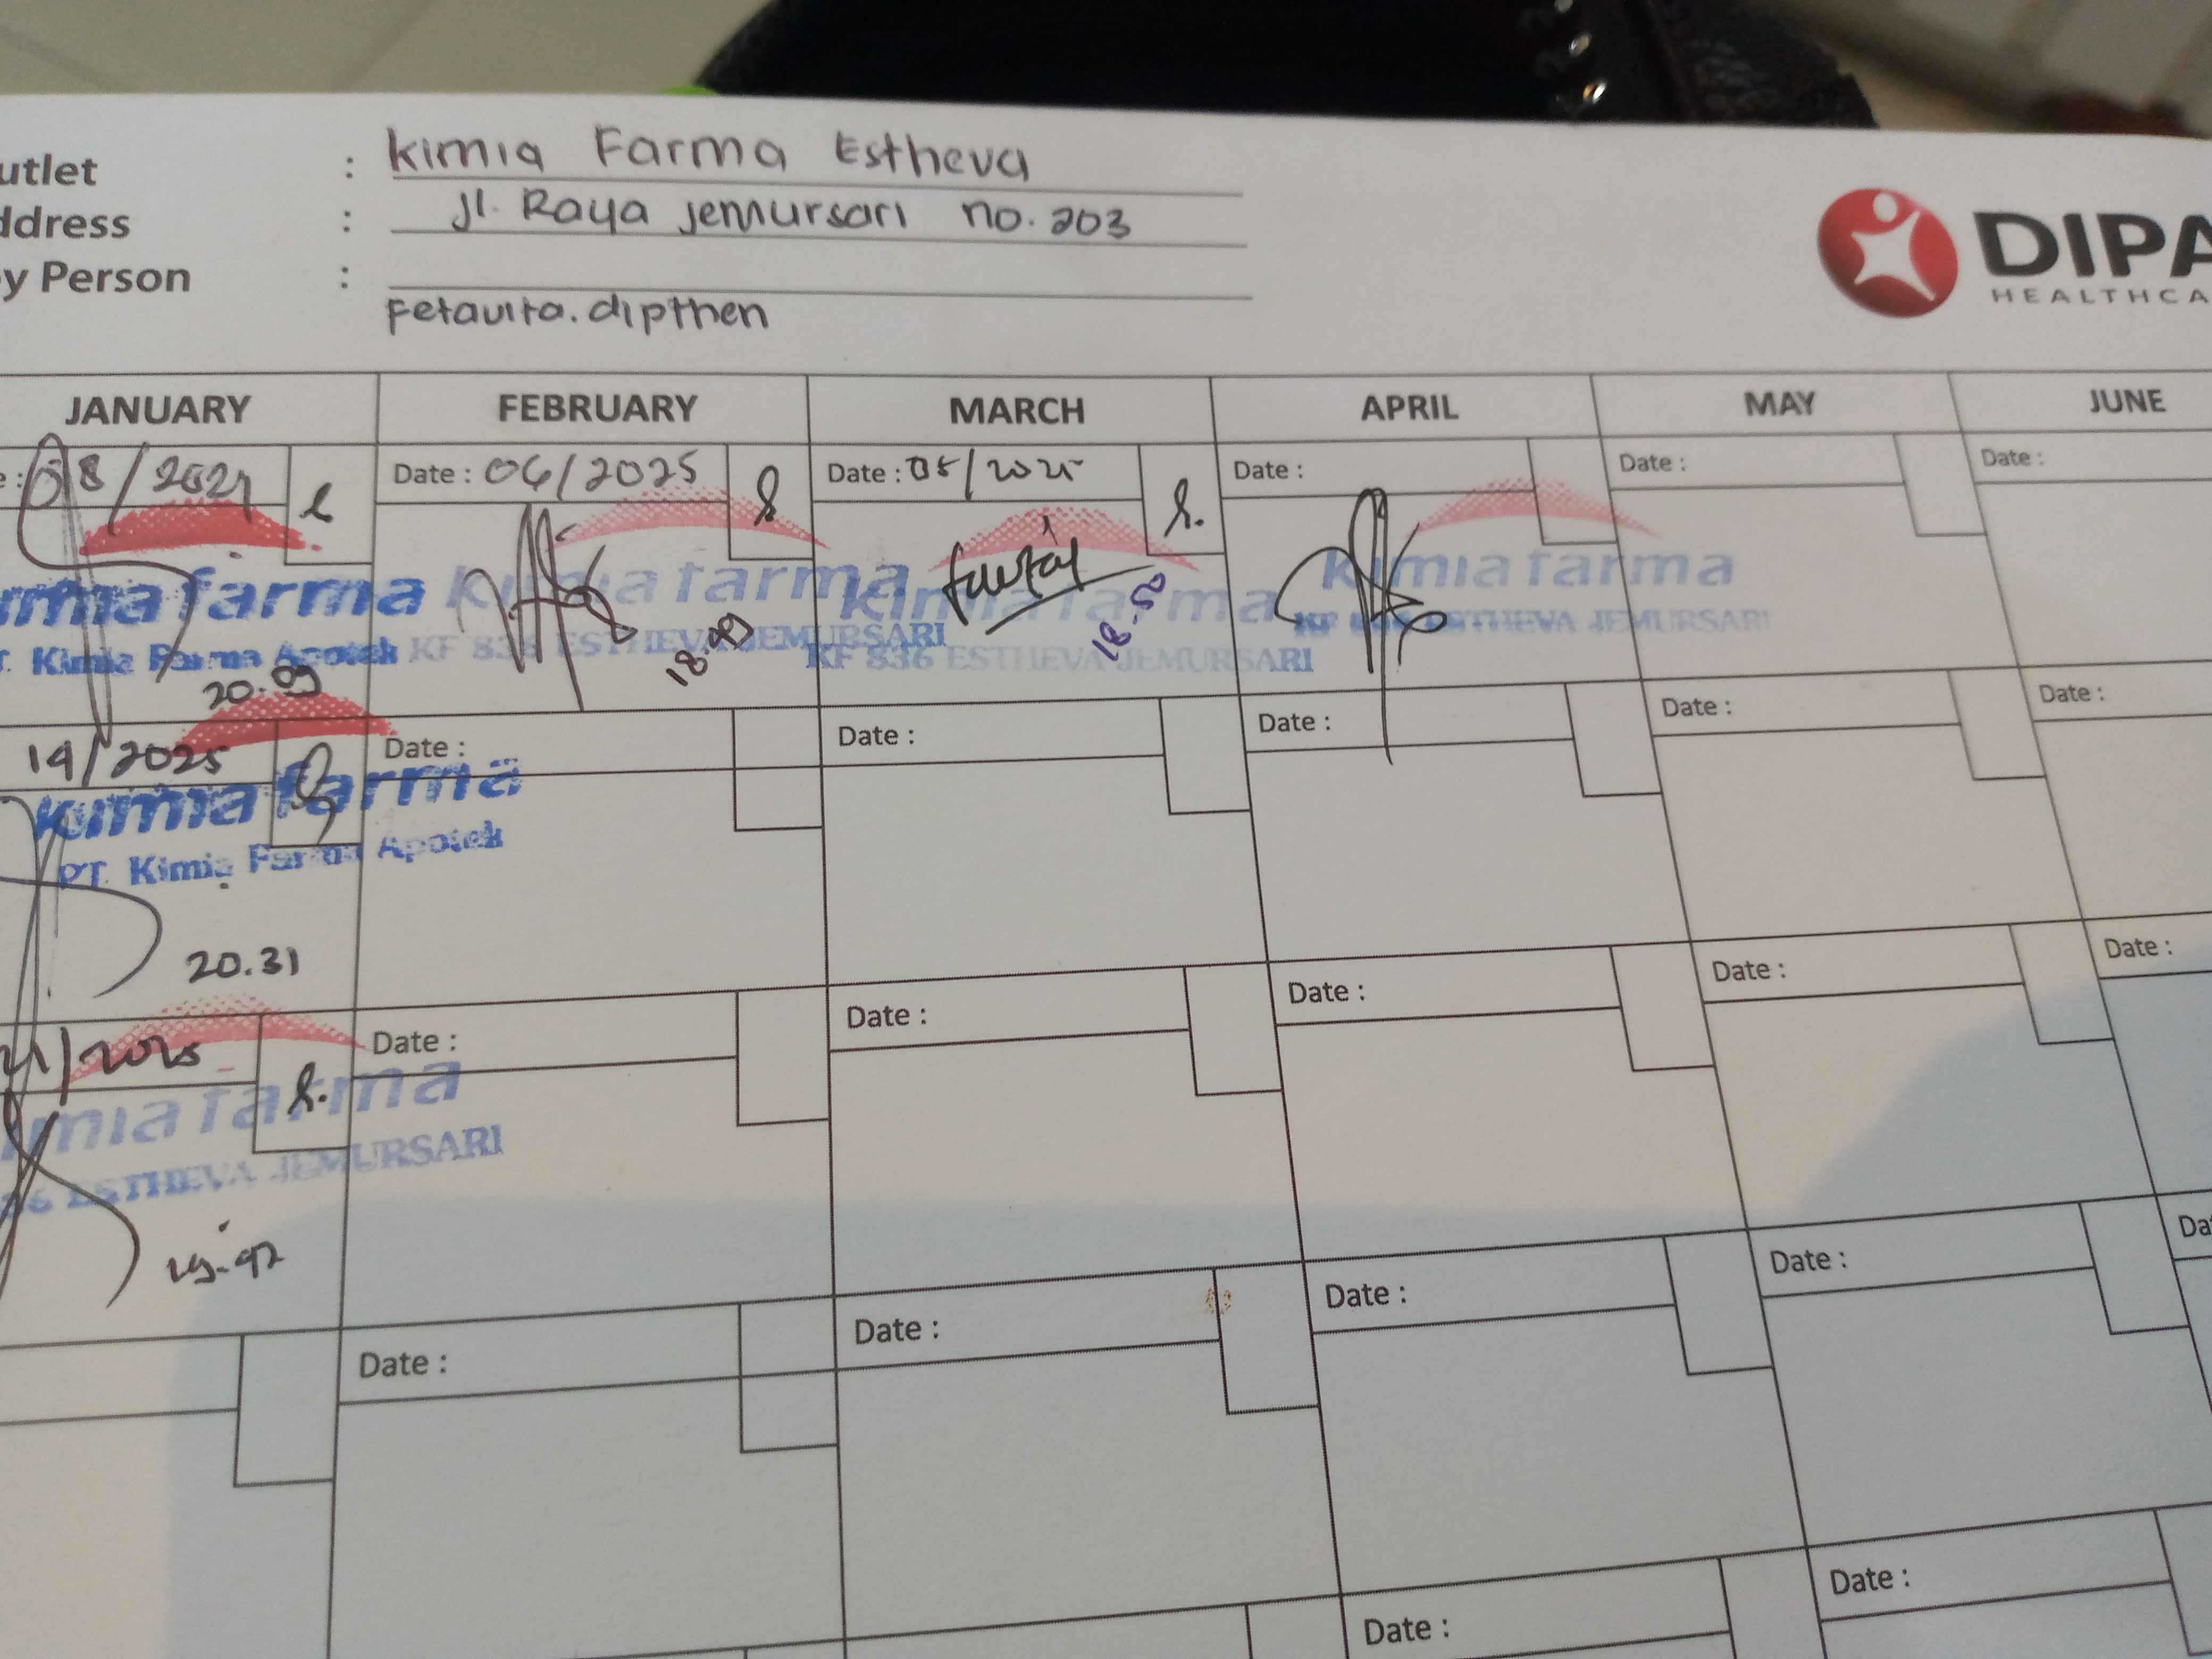 utlet : Kimia Farma Estheva
ddress : Jl. Raya Jemursari no. 203
y Person :
Fetavita. dipthen
DIPA
HEALTHCA
JANUARY FEBRUARY MARCH APRIL MAY JUNE
08/ Date : 06/2025 Date : 05/2025 Date : Date : Date :
kimia farma kimia farma kimia farma
PT. Kimia Farma Apotek KF 836 ESTHEVA JEMURSARI KF 836 ESTHEVA JEMURSARI ESTHEVA JEMURSARI
20.09 18.49 18.50
14/2025 Date : Date : Date : Date : Date :
kimia farma
PT. Kimia Farma Apotek
20.31
21/2025 Date : Date : Date : Date : Date :
imia farma
36 ESTHEVA JEMURSARI
19.47
Date : Date : Date : Date : Da
Date : Date :